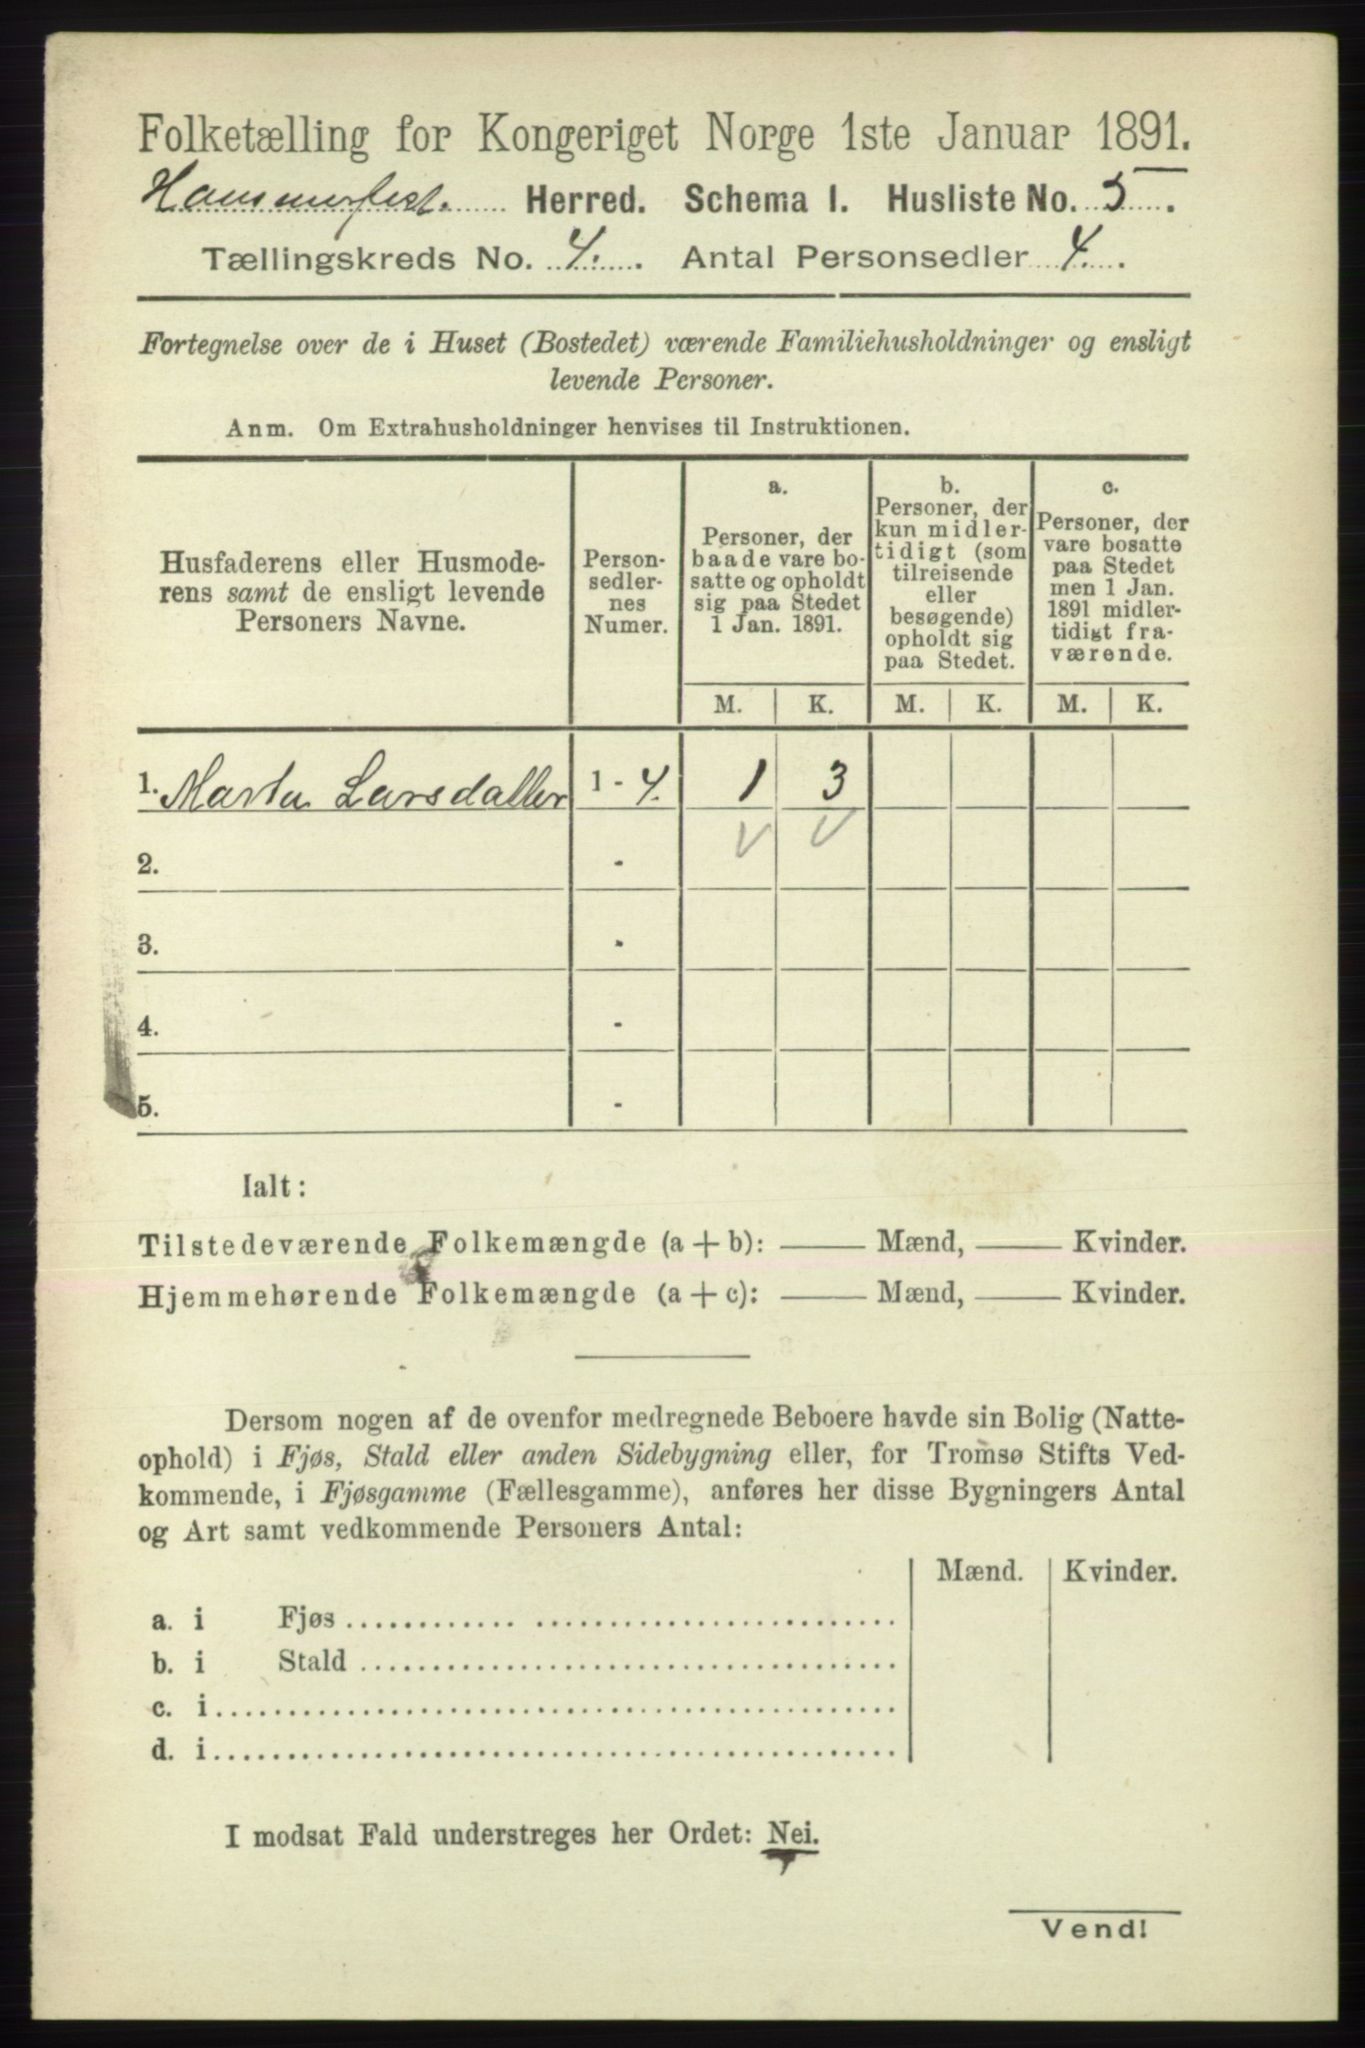 Folketælling for Kongeriget Norge 1ste Januar 1891.
Hammerfest. Herred. Schema I. Husliste No. 5.
Tællingskreds No. 4. Antal Personsedler 4.
Fortegnelse over de i Huset (Bostedet) værende Familiehusholdninger og ensligt
levende Personer.
Anm. Om Extrahusholdninger henvises til Instruktionen.
Husfaderens eller Husmode-
rens samt de ensligt levende
Personers Navne.
Person-
sedler-
nes
Numer.
a.
Personer, der
baade vare bo-
satte og opholdt
sig paa Stedet
1 Jan. 1891.
b.
Personer, der
kun midler-
tidigt (som
tilreisende
eller
besøgende)
opholdt sig
paa Stedet.
c.
Personer, der
vare bosatte
paa Stedet
men 1 Jan.
1891 midler-
tidigt fra-
værende.
M. K. M. K. M. K.
1. Marta Larsdatter 1 - 4. 1 3
2. -
3. -
4. -
5. -
Ialt:
Tilstedeværende Folkemængde (a + b): —— Mænd, —— Kvinder.
Hjemmehørende Folkemængde (a + c): —— Mænd, —— Kvinder.
Dersom nogen af de ovenfor medregnede Beboere havde sin Bolig (Natte-
ophold) i Fjøs, Stald eller anden Sidebygning eller, for Tromsø Stifts Ved-
kommende, i Fjøsgamme (Fællesgamme), anføres her disse Bygningers Antal
og Art samt vedkommende Personers Antal:
Mænd. Kvinder.
a. i Fjøs
b. i Stald
c. i
d. i
I modsat Fald understreges her Ordet: Nei.
Vend!